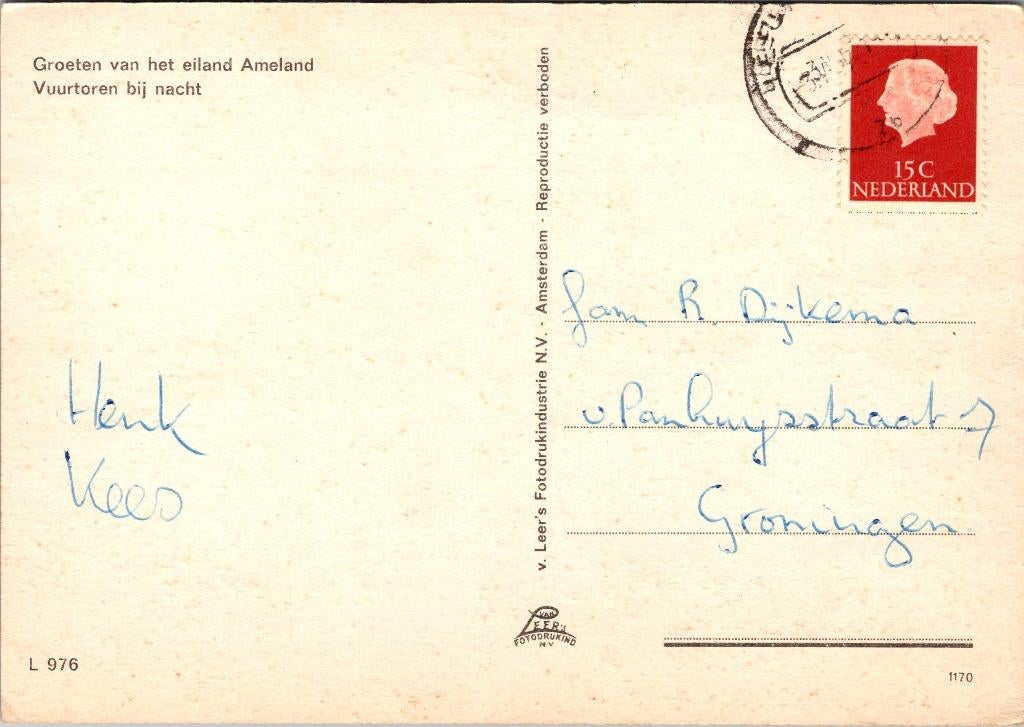 Groeten van het eiland Ameland
Vuurtoren bij nacht
Henk
Kees
v. Leer's Fotodrukindustrie N.V. - Amsterdam - Reproductie verboden
VAN
LEER'S
FOTODRUKIND
N V
L 976
15 C
NEDERLAND
Fam R. Dijkema
v. Panhuysstraat 7
Groningen
1170